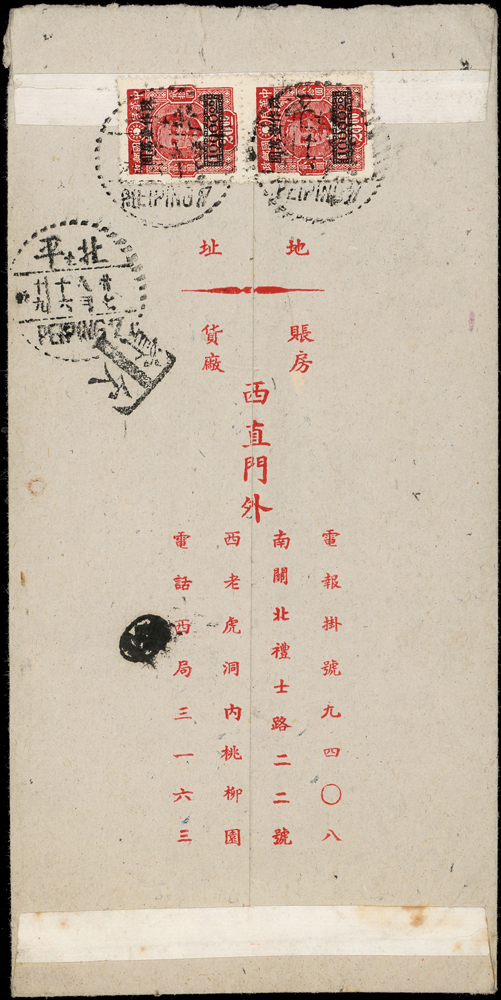 PEIPING 17
PEIPING 17
北平
PEIPING 17
地址
賬房
貨廠
西直門外
電報掛號九四〇八
南關北禮士路二二號
西老虎洞内桃柳園
電話西局三一六三